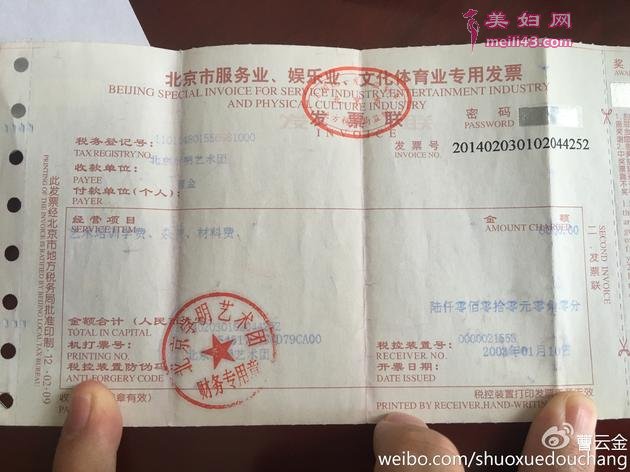 美妇网
meili43.com
北京市服务业、娱乐业、文化体育业专用发票
BEIJING SPECIAL INVOICE FOR SERVICE INDUSTRY, ENTERTAINMENT INDUSTRY
AND PHYSICAL CULTURE INDUSTRY
发票联
INVOICE
密码
PASSWORD
税务登记号:
TAX REGISTRY NO.
发票号 201402030102044252
INVOICE NO.
收款单位:
PAYEE
付款单位(个人):
PAYER
经营项目
SERVICE ITEM
金额
AMOUNT CHARGED
材料费、
陆仟零佰零拾零元零角零分
金额合计(人民币
TOTAL IN CAPITAL
机打票号:
PRINTING NO.
税控装置防伪码:
ANTI-FORGERY CODE
税控装置号: 0000021553
RECEIVER NO.
开票日期: 2003年01月10日
DATE ISSUED
艺术团
财务专用章
税控装置打印发票
PRINTED BY RECEIVER, HAND-WRITING
二.发票联
SECOND INVOICE
此发票经北京市地方税务局批准印制
12.02.09
曹云金
weibo.com/shuoxuedouchang